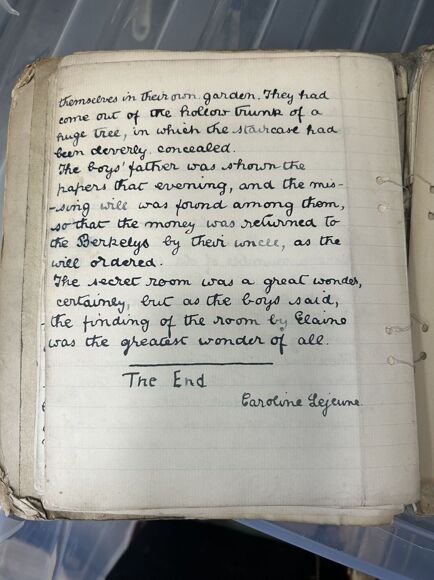 themselves in their own garden. They had
come out of the hollow trunk of a
huge tree, in which the staircase had
been cleverly concealed.
The boys' father was shown the
papers that evening, and the mis-
-sing will was found among them,
so that the money was returned to
the Berkelys by their uncle, as the
will ordered.
The secret room was a great wonder,
certainly, but as the boys said,
the finding of the room by Elaine
was the greatest wonder of all.
The End
Caroline Lejeune.